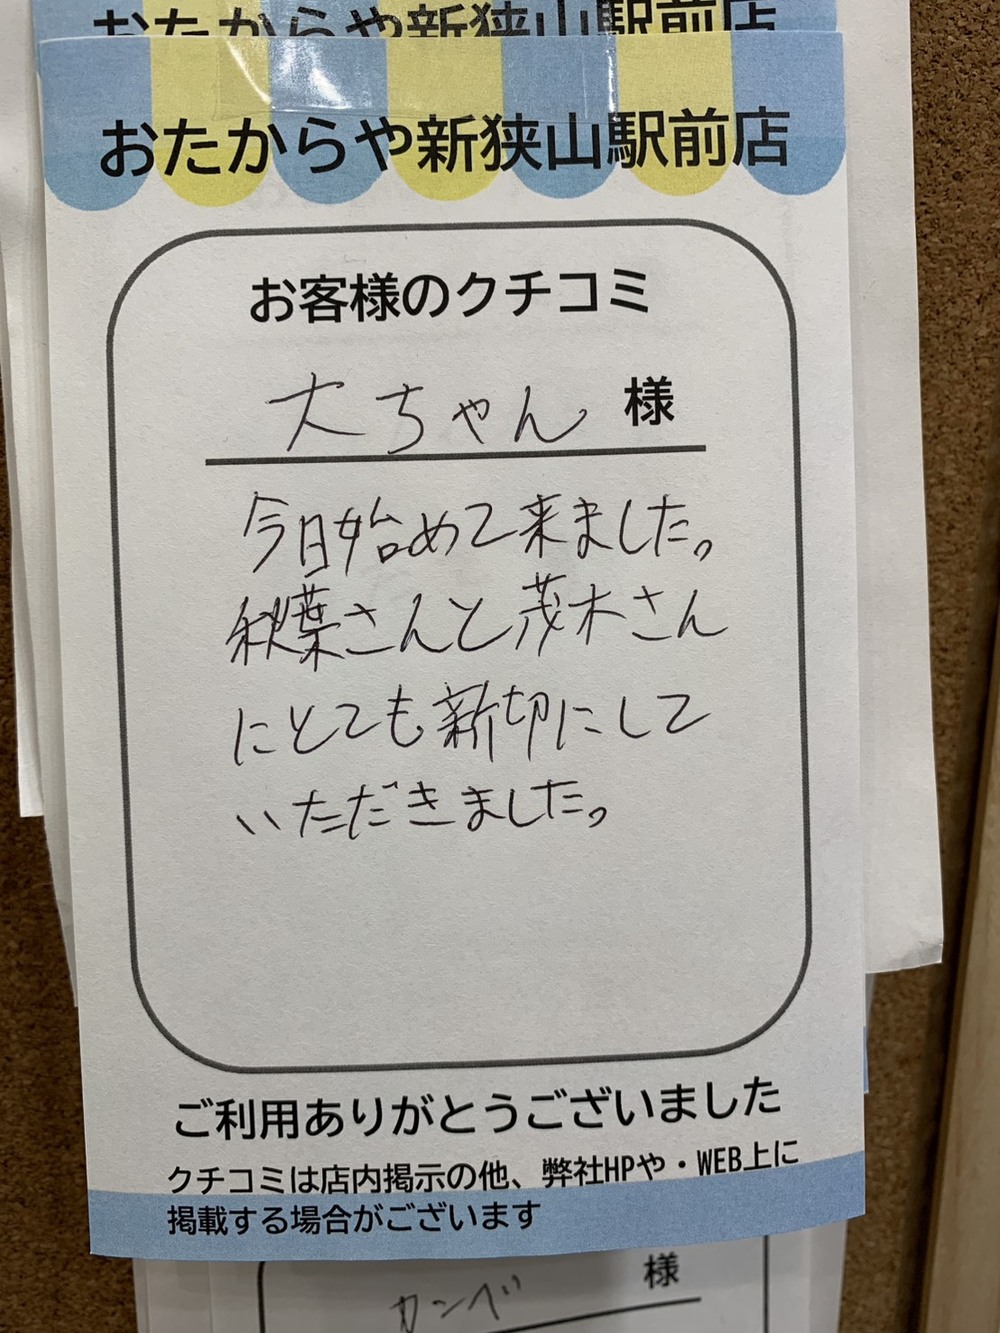 おたからや新狭山駅前店
おたからや新狭山駅前店
お客様のクチコミ
大ちゃん 様
今日始めて来ました。
秋葉さんと茂木さん
にとても新切にして
いただきました。
ご利用ありがとうございました
クチコミは店内掲示の他、弊社HPや・WEB上に
掲載する場合がございます
カンベ 様